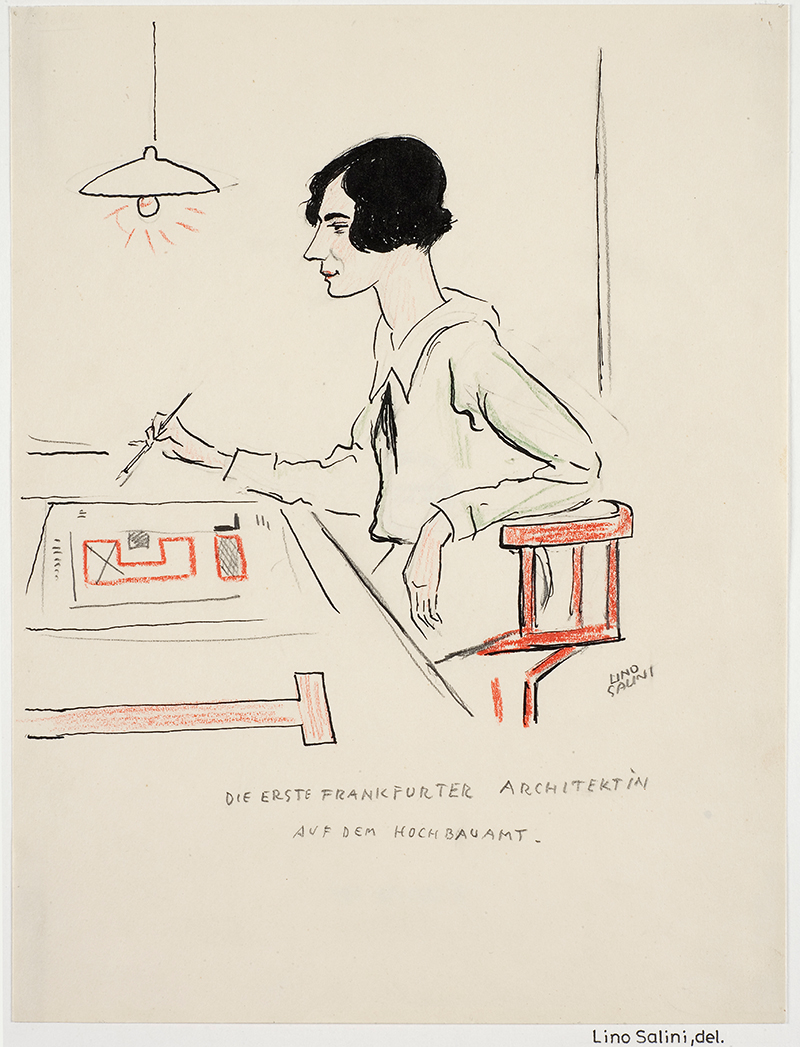 LINO
SALINI
DIE ERSTE FRANKFURTER ARCHITEKTIN
AUF DEM HOCHBAUAMT.
Lino Salini, del.